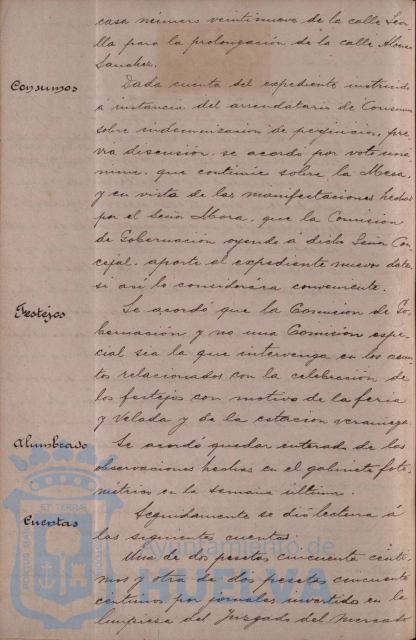 casa número veintinueve de la calle Sevi-
lla para la prolongación de la calle Alonso
Sanchez.
Consumos
Dada cuenta del expediente instruido
á instancia del arrendatario de Consumos
sobre indemnizacion de perjuicios, pre-
via discusion, se acordó por voto uná-
nime, que continúe sobre la Mesa,
y en vista de las manifestaciones hechas
por el Señor Mora, que la Comision
de Gobernacion oyendo á dicho Señor Con-
cejal, aporte al expediente nuevos datos
si así lo considerára conveniente.
Festejos
Se acordó que la Comision de Go-
bernación y no una Comision espe-
cial sea la que intervenga en los asun-
tos relacionados con la celebración de
los festejos con motivo de la feria
y Velada y de la estacion veraniega.
Alumbrado
Se acordó quedar enterado de las
observaciones hechas en el gabinete foto-
métrico en la semana última.
Cuentas
Seguidamente se dió lectura á
las siguientes cuentas.
Una de dos pesetas cincuenta cénti-
mos y otra de dos pesetas cincuenta
céntimos por jornales invertido en la
limpieza del Juzgado del mercado
Ayuntamiento de
HUELVA